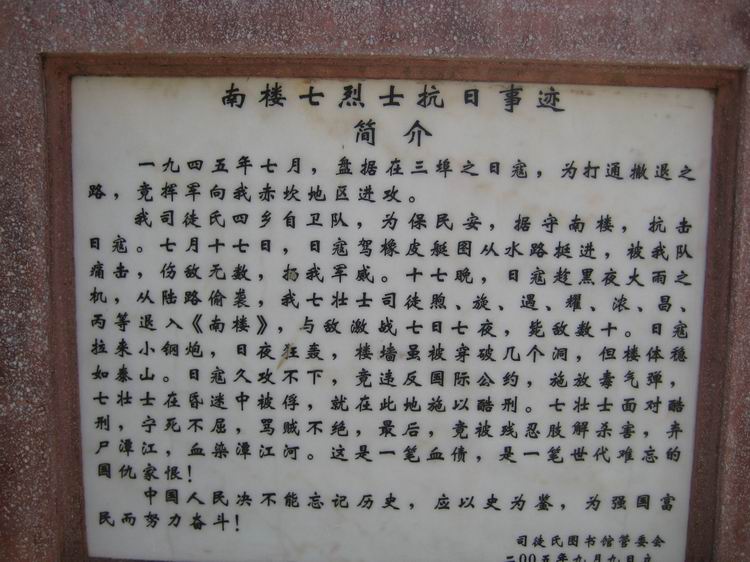 南楼七烈士抗日事迹
简介
一九四五年七月，盘据在三埠之日寇，为打通撤退之
路，竟挥军向我赤坎地区进攻。
我司徒氏四乡自卫队，为保民安，据守南楼，抗击
日寇。七月十七日，日寇驾橡皮艇图从水路挺进，被我队
痛击，伤敌无数，扬我军威。十七晚，日寇趁黑夜大雨之
机，从陆路偷袭，我七壮士司徒煦、旋、遇、耀、浓、昌、
丙等退入《南楼》，与敌激战七日七夜，毙敌数十。日寇
拉来小钢炮，日夜狂轰，楼墙虽被穿破几个洞，但楼体稳
如泰山。日寇久攻不下，竟违反国际公约，施放毒气弹，
七壮士在昏迷中被俘，就在此地施以酷刑。七壮士面对酷
刑，宁死不屈，骂贼不绝，最后，竟被残忍肢解杀害，弃
尸潭江，血染潭江河。这是一笔血债，是一笔世代难忘的
国仇家恨！
中国人民决不能忘记历史，应以史为鉴，为强国富
民而努力奋斗！
司徒氏图书馆管委会
二00五年九月九日立